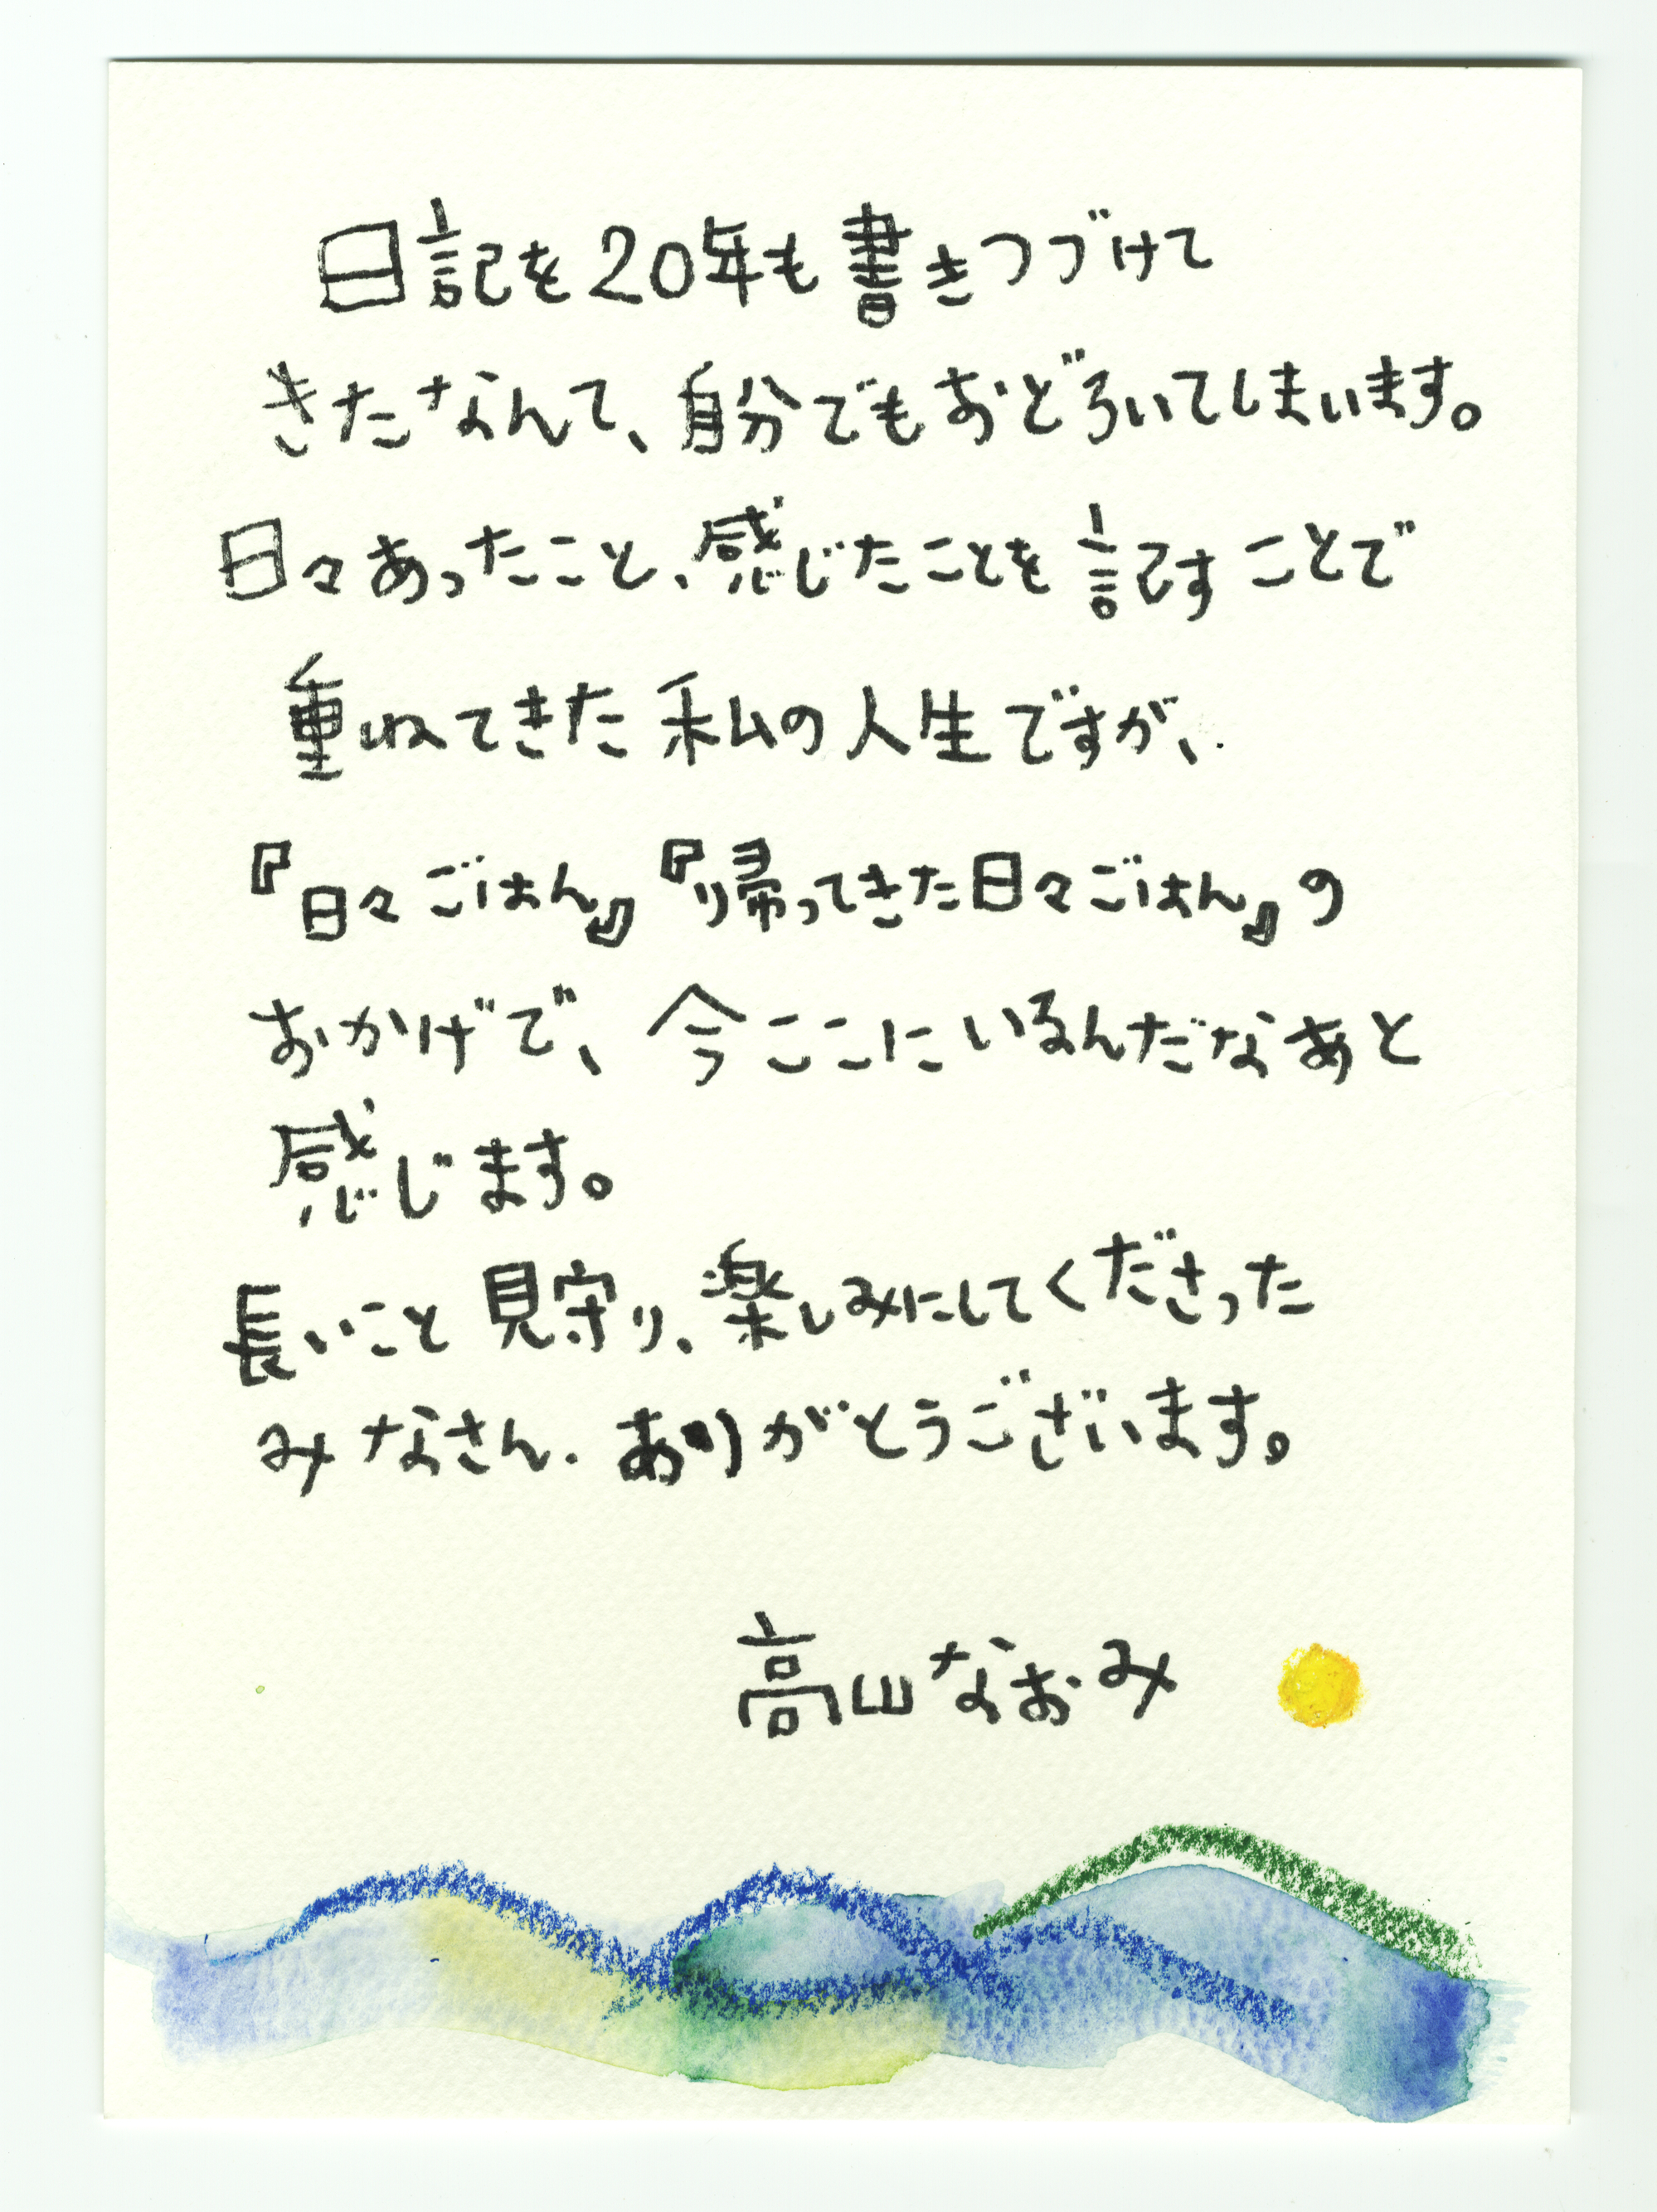 日記を20年も書きつづけて
きたなんて、自分でもおどろいてしまいます。
日々あったこと、感じたことを記すことで
重ねてきた私の人生ですが、
『日々ごはん』『帰ってきた日々ごはん』の
おかげで、今ここにいるんだなあと
感じます。
長いこと見守り、楽しみにしてくださった
みなさん、ありがとうございます。
高山なおみ